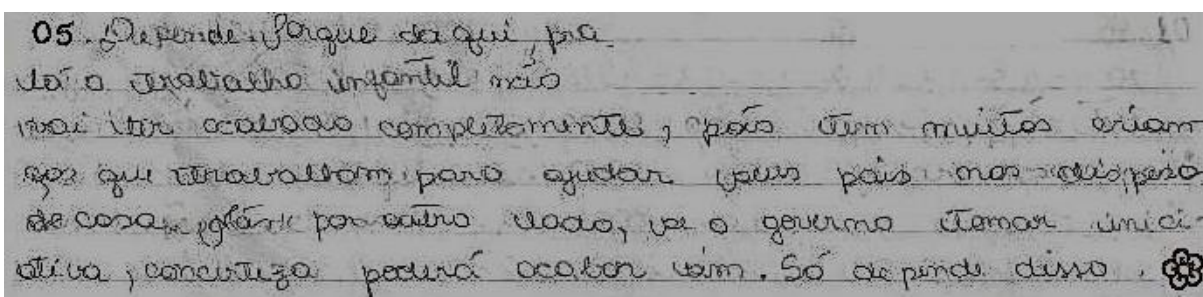 05. Depende. Porque da qui, pra
lá o trabalho infantil não
vai ter acabado completamente, pois tem muitas crian
ças que trabalham para ajudar seus pais nas despesa
de casa, por outro lado, se o governo tomar inici
ativa, concerteza poderá acabar sim. Só depende disso.